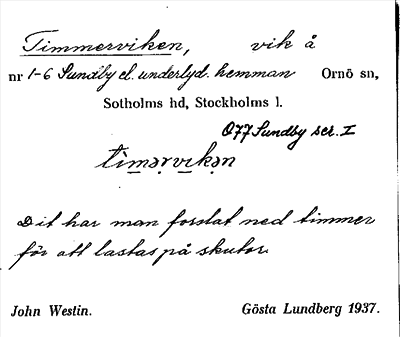 Timmerviken, vik å
nr 1-6 Sundby el. underlyd. hemman Ornö sn,
Sotholms hd, Stockholms l.
077 Sundby ser. I
timərvikən
Dit har man forslat ned timmer
för att lastas på skutor.
John Westin. Gösta Lundberg 1937.